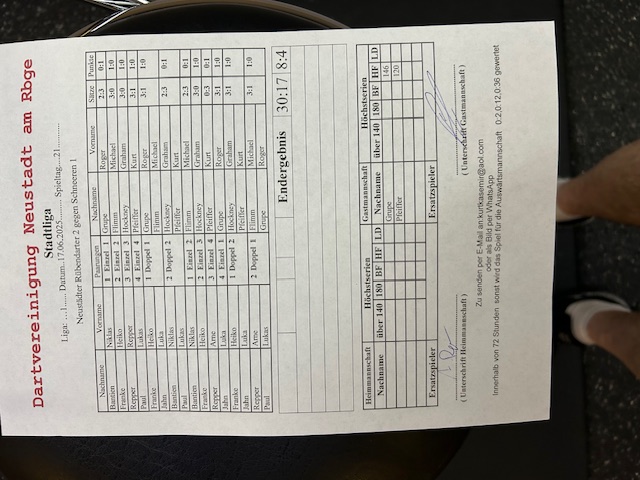 Dartvereinigung Neustadt am Rbge
Stadtliga
Liga: ...1...... Datum..17.06.2025......... Spieltag....21...........
Neustädter Rübendarter 2 gegen Schneeren 1
Nachname Vorname Paarungen Nachname Vorname Sätze Punkte
Bantien Niklas 1 Einzel 1 Grupe Roger 2:3 0:1
Franke Heiko 2 Einzel 2 Flimm Michael 3:0 1:0
Repper Repper 3 Einzel 3 Hockney Graham 3:0 1:0
Paul Lukas 4 Einzel 4 Pfeiffer Kurt 3:1 1:0
Franke Heiko 1 Doppel 1 Grupe Roger 3:1 1:0
Jahn Luka Flimm Michael
Bantien Niklas 2 Doppel 2 Hockney Graham 2:3 0:1
Paul Lukas Pfeiffer Kurt
Bantien Niklas 1 Einzel 2 Flimm Michael 2:3 0:1
Franke Heiko 2 Einzel 3 Hockney Graham 3:0 1:0
Repper Arne 3 Einzel 4 Pfeiffer Kurt 0:3 0:1
Jahn Luka 4 Einzel 1 Grupe Roger 3:1 1:0
Franke Heiko 1 Doppel 2 Hockney Graham 3:1 1:0
Jahn Luka Pfeiffer Kurt
Repper Arne 2 Doppel 1 Flimm Michael 3:1 1:0
Paul Lukas Grupe Roger
Endergebnis 30:17 8:4
Heimmannschaft Höchstserien Gastmannschaft Höchstserien
Nachname über 140 180 BF HF LD Nachname über 140 180 BF HF LD
Grupe 146
Pfeiffer 120
Ersatzspieler Ersatzspieler
( Unterschrift Heimmannschaft ) ( Unterschrift Gastmannschaft )
Zu senden per E-Mail an kurtkasimir@aol.com
oder als Bild per WhatsApp
Innerhalb von 72 Stunden sonst wird das Spiel für die Auswärtsmannschaft 0:2,0:12,0:36 gewertet